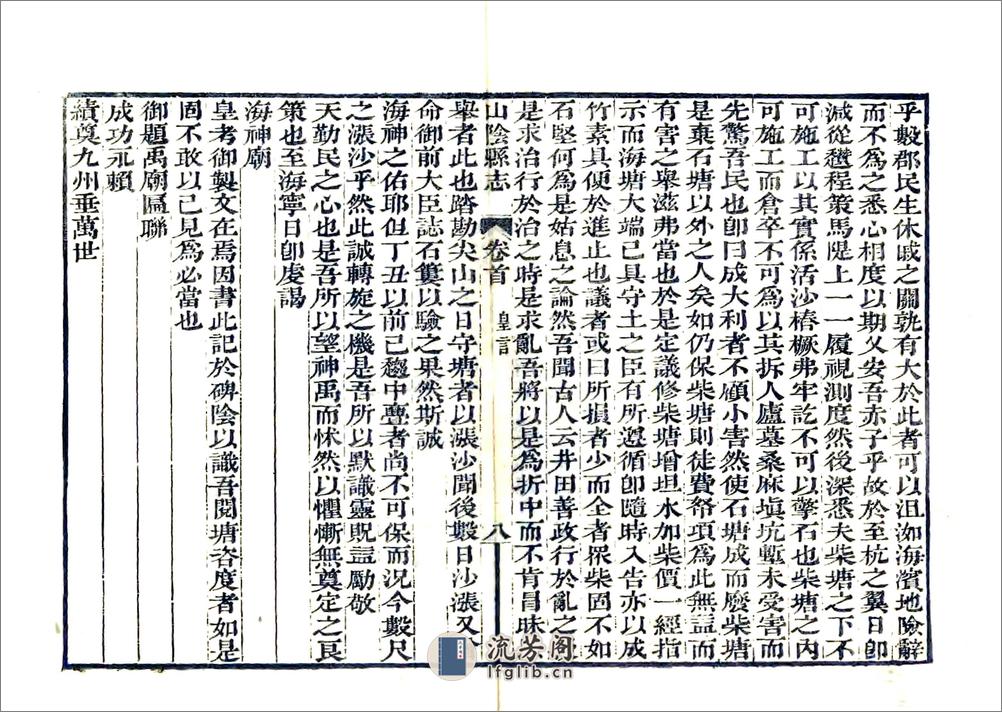 乎數郡民生休戚之關孰有大於此者可以沮洳海濱地險辭
而不爲之悉心相度以期乂安吾赤子乎故於至杭之翼日卽
減從趲程策馬隄上一一履視測度然後深悉夫柴塘之下不
可施工以其實係活沙樁橛弗牢訖不可以擎石也柴塘之內
可施工而倉卒不可爲以其拆人廬墓桑麻塡坑塹未受害而
先驚吾民也卽曰成大利者不顧小害然使石塘成而廢柴塘
是棄石塘以外之人矣如仍保柴塘則徒費帑項爲此無益而
有害之舉滋弗當也於是定議修柴塘增坦水加柴價一經指
示而海塘大端已具守土之臣有所遵循卽隨時入告亦以成
竹素具便於進止也議者或曰所損者少而全者衆柴固不如
石堅何爲是姑息之論然吾聞古人云井田善政行於亂之
是求治行於治之時是求亂吾將以是爲折中而不肯冒昧
山陰縣志
卷首
皇言
八
舉者此也踏勘尖山之日守塘者以漲沙聞後數日沙漲又
命御前大臣誌石簍以驗之果然斯誠
海神之佑耶但丁丑以前已趨中亹者尚不可保而況今數尺
之漲沙乎然此誠轉旋之機是吾所以默識靈貺益勵敬
天勤民之心也是吾所以望神禹而怵然以懼慚無奠定之良
策也至海寧日卽虔謁
海神廟
皇考御製文在焉因書此記於碑陰以識吾閱塘咨度者如是
固不敢以己見爲必當也
御題禹廟匾聯
成功永賴
績奠九州垂萬世
流芳阁
lfglib.cn